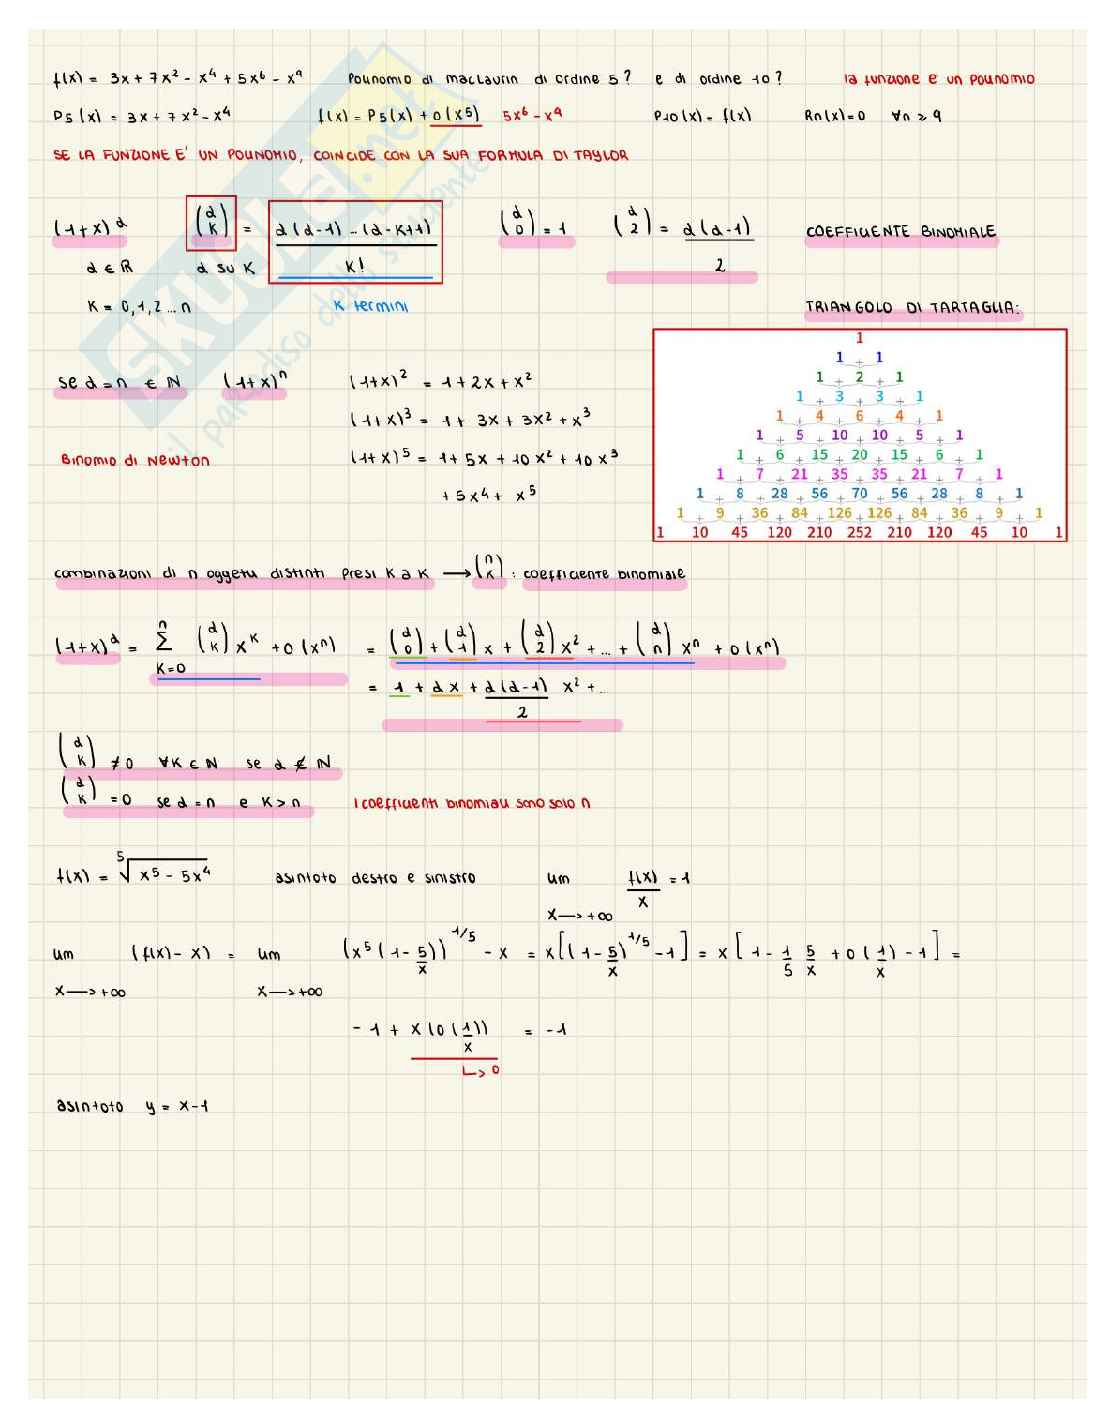 f(x) = 3x + 7x² - x⁴ + 5x⁶ - x⁹ Polinomio di MacLaurin di ordine 5? e di ordine 10? la funzione è un polinomio
P5(x) = 3x + 7x² - x⁴ f(x) = P5(x) + o(x⁵) 5x⁶ - x⁹ P10(x) = f(x) Rn(x) = 0 ∀n ≥ 9
SE LA FUNZIONE E' UN POLINOMIO, COINCIDE CON LA SUA FORMULA DI TAYLOR
(1+x)^α (α k) = α(α-1)...(α-k+1) / k! (α 0) = 1 (α 2) = α(α-1) / 2 COEFFICIENTE BINOMIALE
α ∈ R α su k
k = 0, 1, 2 ... n k termini TRIANGOLO DI TARTAGLIA:
1
1 + 1
1 + 2 + 1
1 + 3 + 3 + 1
1 + 4 + 6 + 4 + 1
1 + 5 + 10 + 10 + 5 + 1
1 + 6 + 15 + 20 + 15 + 6 + 1
1 + 7 + 21 + 35 + 35 + 21 + 7 + 1
1 + 8 + 28 + 56 + 70 + 56 + 28 + 8 + 1
1 + 9 + 36 + 84 + 126 + 126 + 84 + 36 + 9 + 1
1 10 45 120 210 252 210 120 45 10 1
se α = n ∈ N (1+x)ⁿ (1+x)² = 1 + 2x + x²
(1+x)³ = 1 + 3x + 3x² + x³
Binomio di Newton (1+x)⁵ = 1 + 5x + 10x² + 10x³
+ 5x⁴ + x⁵
combinazioni di n oggetti distinti presi k a k → (n k) : coefficiente binomiale
(1+x)^α = Σ_{k=0}^{n} (α k) x^k + o(xⁿ) = (α 0) + (α 1) x + (α 2) x² + ... + (α n) xⁿ + o(xⁿ)
= 1 + αx + α(α-1)/2 x² + ...
(α k) ≠ 0 ∀k ∈ N se α ∉ N
(α k) = 0 se α = n e k > n I coefficienti binomiali sono solo n
f(x) = ⁵√(x⁵ - 5x⁴) asintoto destro e sinistro lim x→+∞ f(x)/x = 1
lim x→+∞ (f(x) - x) = lim x→+∞ (x⁵(1 - 5/x))^1/5 - x = x[(1 - 5/x)^1/5 - 1] = x[1 - 1/5 5/x + o(1/x) - 1] =
-1 + x(o(1/x)) = -1
↳ 0
asintoto y = x - 1
SKUOLA.net
il paradiso dello studente